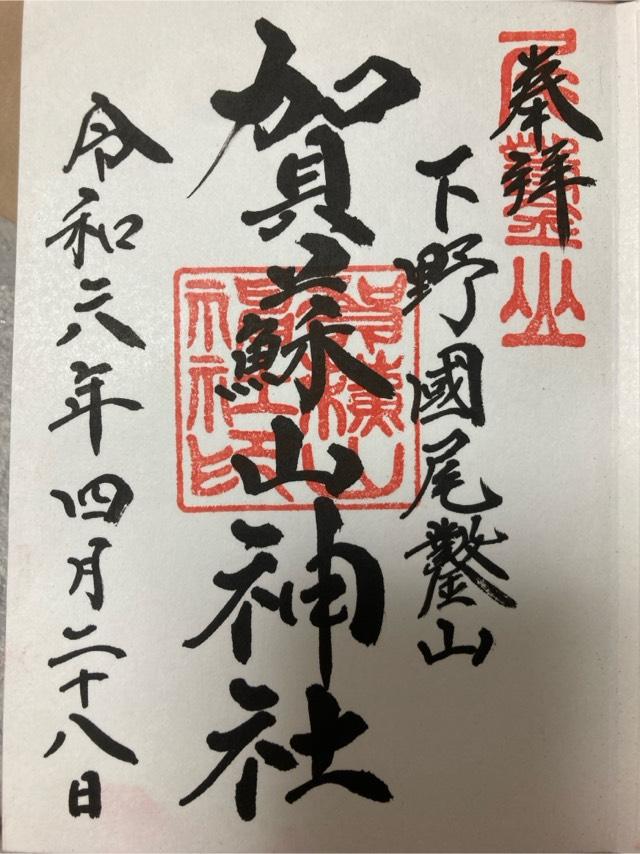 奉拝
下野國尾鑿山
賀蘇山神社
令和六年四月二十八日
尾鑿山